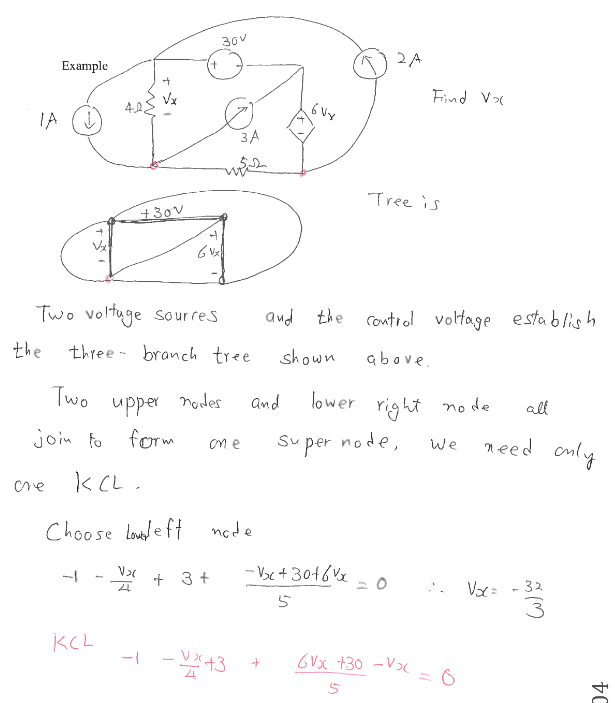 30V
+ -
2A
Example
+
4Ω Vx
-
Find Vx
1A
6Vx
+
-
3A
5Ω
Tree is
+30V
+
Vx
-
+
6Vx
-
Two voltage sources and the control voltage establish
the three-branch tree shown above.
Two upper nodes and lower right node all
join to form one super node, we need only
one KCL.
Choose lower left node
-1 - Vx/4 + 3 + (-Vx+30+6Vx)/5 = 0 ∴ Vx = -32/3
KCL -1 - Vx/4 + 3 + (6Vx+30-Vx)/5 = 0
04